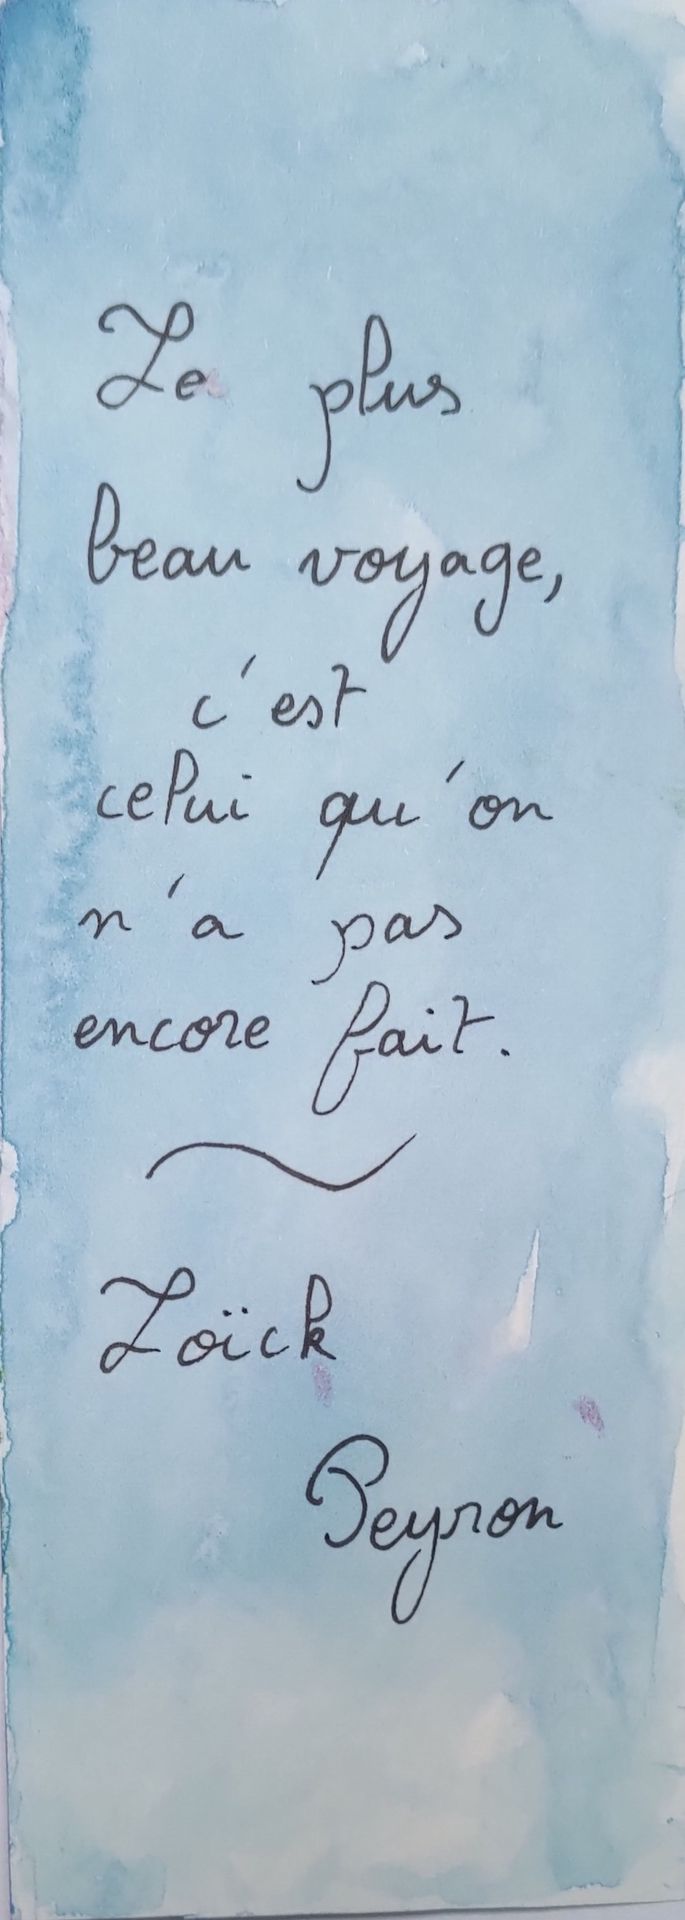 Le plus
beau voyage,
c'est
celui qu'on
n'a pas
encore fait.
Loïck
Peyron